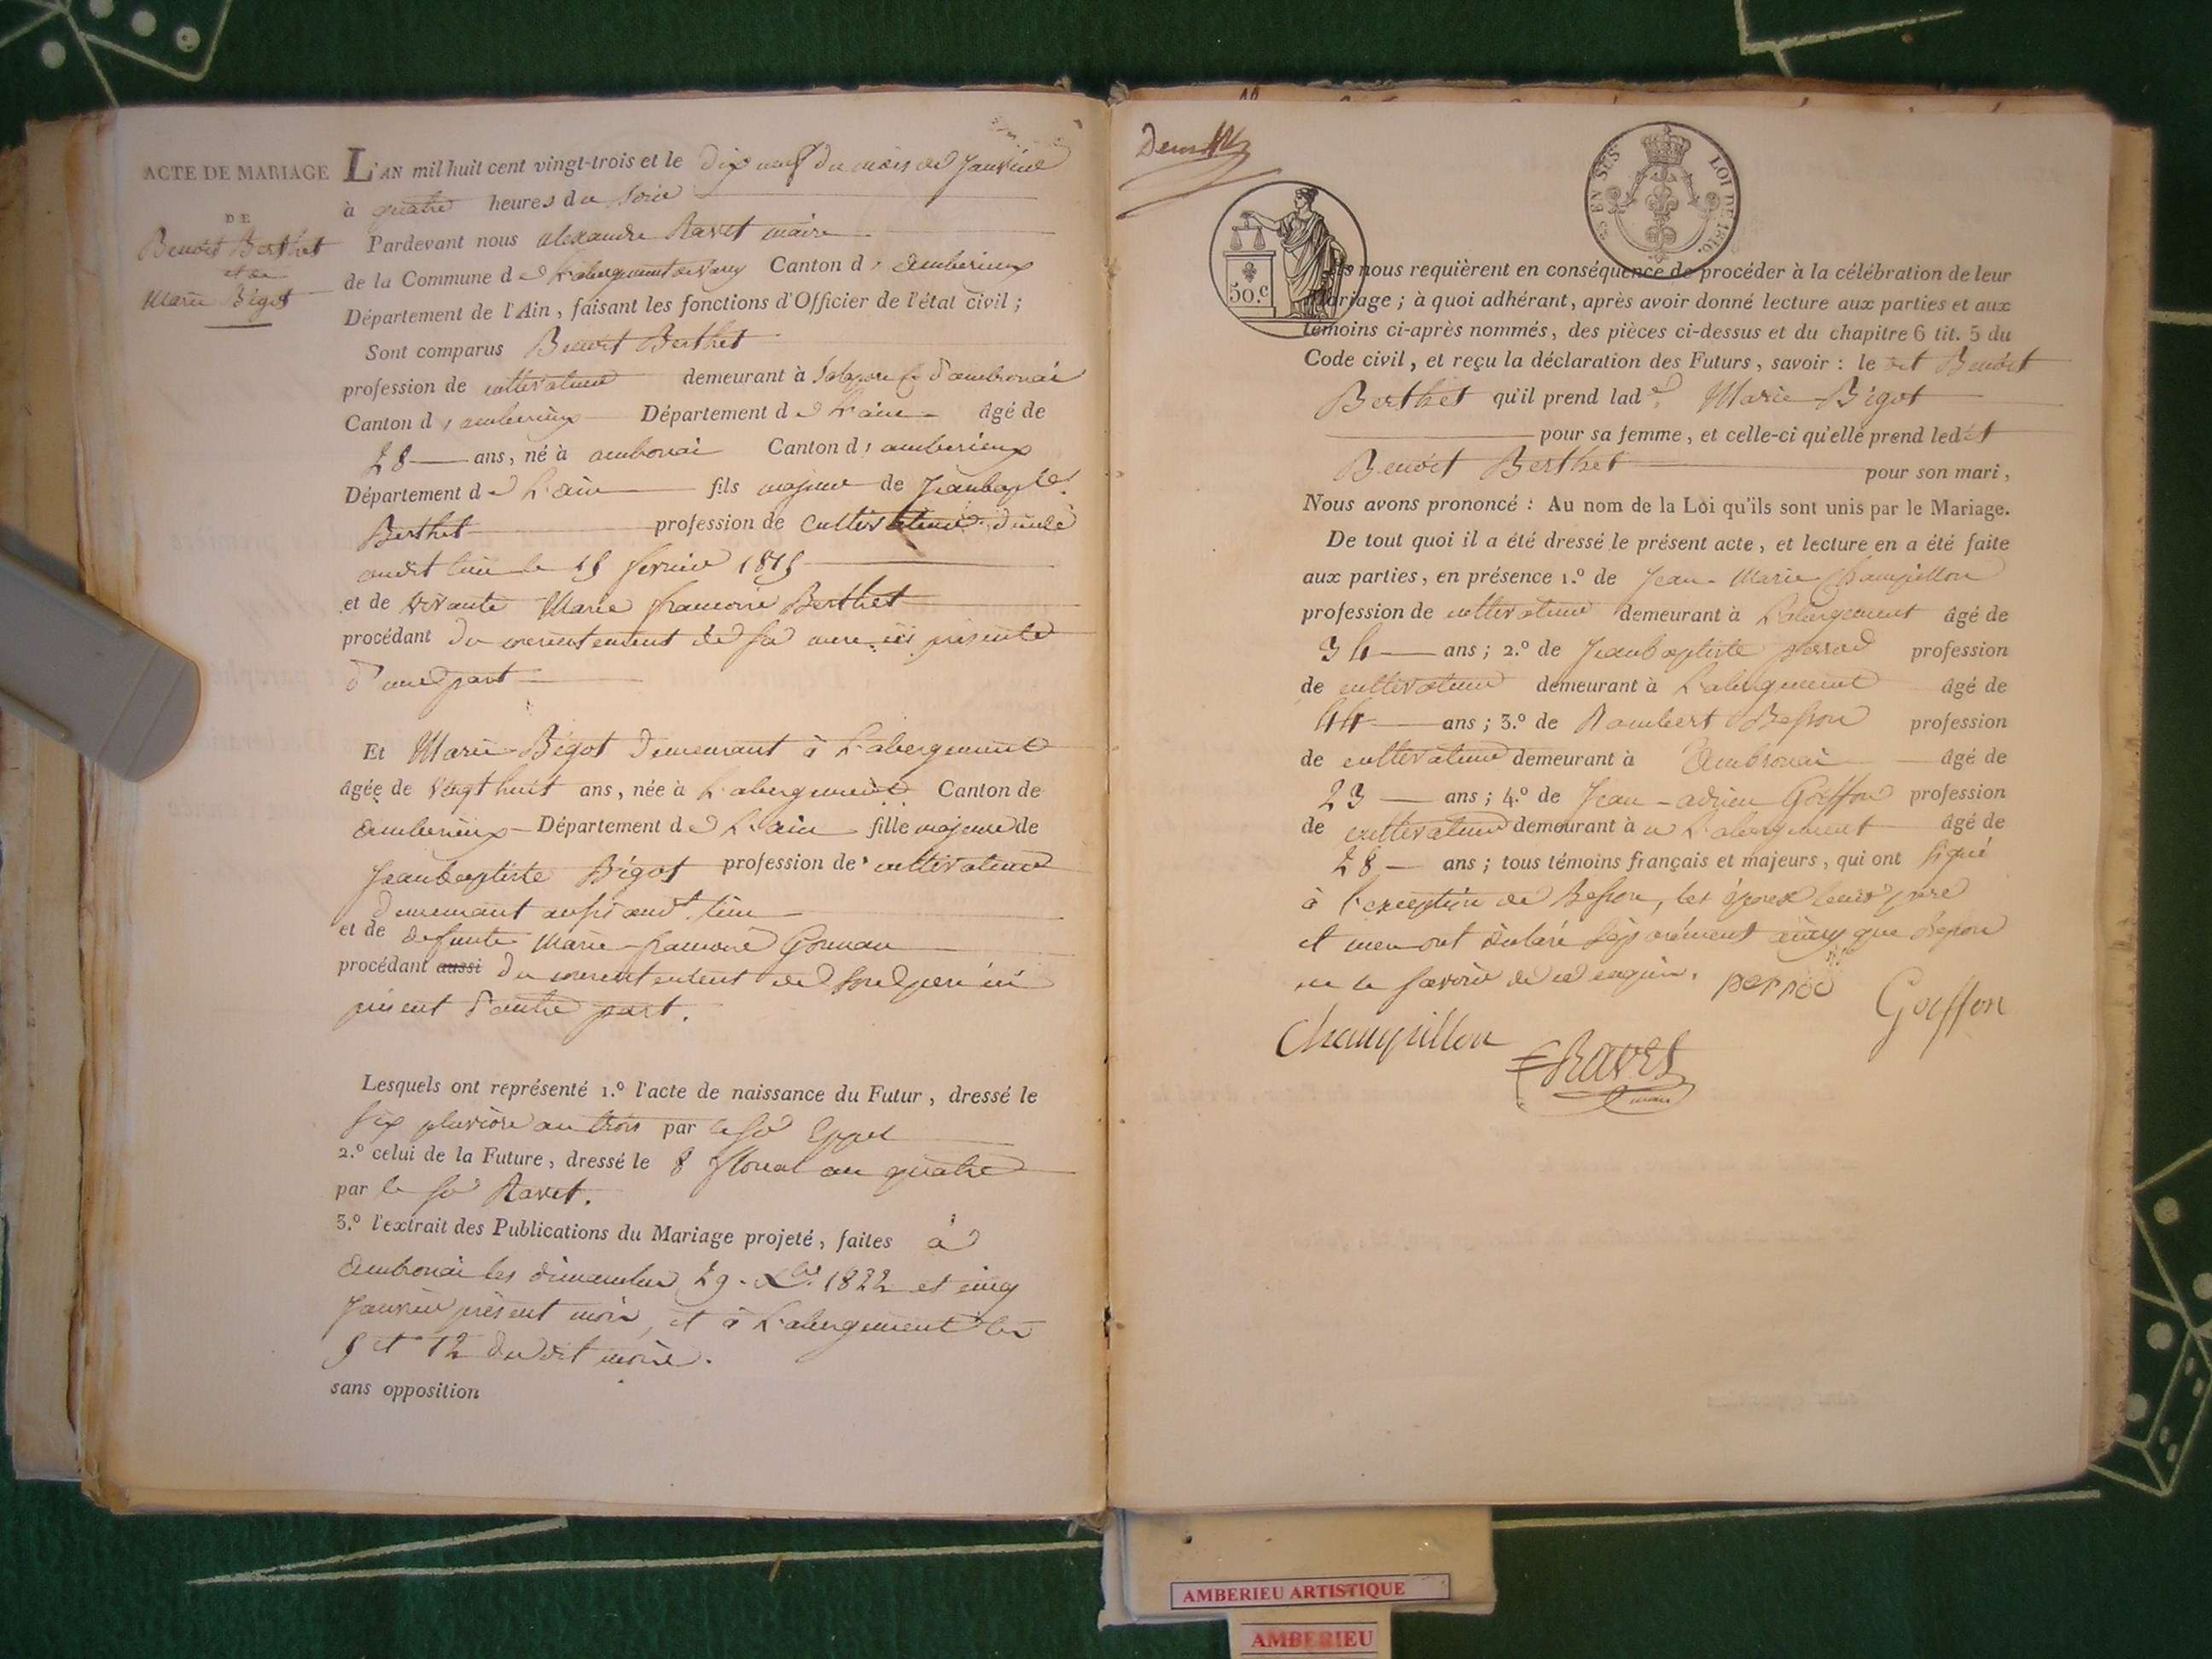 ACTE DE MARIAGE
DE
Benoit Berthet
et de
Marie Bégot
L'AN mil huit cent vingt-trois et le dix neuf du mois de Janvier
à quatre heures du soir
Pardevant nous alexandre Ravet maire
de la Commune de L'abergement de Varey Canton d'amberieux
Département de l'Ain, faisant les fonctions d'Officier de l'état civil;
Sont comparus Benoit Berthet
profession de cultivateur demeurant à d'ambronai
Canton d'amberieux Département de L'ain âgé de
28 ans, né à ambonai Canton d'amberieux
Département de L'ain fils majeur de Jeanbapte
Berthet profession de cultivateur
audit lieu le 15 fevrier 1815
et de vivante Marie francoise Berthet
procédant du consentement de sa mere ici présente
d'une part
Et Marie Bégot demeurant à L'abergement
âgée de vingt huit ans, née à L'abergement Canton de
amberieux Département de L'ain fille majeure de
Jeanbaptiste Bégot profession de cultivateur
demeurant aussi audt lieu
et de defunte Marie francoise
procédant aussi du consentement de son pere ici
présent d'autre part.
Lesquels ont représenté 1.º l'acte de naissance du Futur, dressé le
six pluviose an trois par le sr
2.º celui de la Future, dressé le 8 floreal an quatre
par le sr Ravet.
3.º l'extrait des Publications du Mariage projeté, faites à
ambronai les dimanches 29 Xbre 1822 et cinq
Janvier présent mois, et à L'abergement les
5 et 12 du dit mois.
sans opposition
EN SUS
LOI DE 1816.
50.c
Ils nous requièrent en conséquence de procéder à la célébration de leur
Mariage; à quoi adhérant, après avoir donné lecture aux parties et aux
témoins ci-après nommés, des pièces ci-dessus et du chapitre 6 tit. 5 du
Code civil, et reçu la déclaration des Futurs, savoir: le dit Benoit
Berthet qu'il prend lade. Marie Bégot
pour sa femme, et celle-ci qu'elle prend ledit
Benoit Berthet pour son mari,
Nous avons prononcé: Au nom de la Loi qu'ils sont unis par le Mariage.
De tout quoi il a été dressé le présent acte, et lecture en a été faite
aux parties, en présence 1.º de Jean-Marie Champillon
profession de cultivateur demeurant à L'abergement âgé de
34 ans; 2.º de Jeanbaptiste perrod profession
de cultivateur demeurant à L'abergement âgé de
44 ans; 3.º de Rambert Besson profession
de cultivateur demeurant à Ambronai âgé de
23 ans; 4.º de Jean-adrien Goiffon profession
de cultivateur demeurant à L'abergement âgé de
28 ans; tous témoins français et majeurs, qui ont signé
à l'exception de Besson, les époux leurs pere
et mere ont déclaré séparément ainsy que Besson
ne le savoir de ce enquis. perrod
Goiffon
Champillon
Ravet
maire
AMBERIEU ARTISTIQUE
AMBERIEU